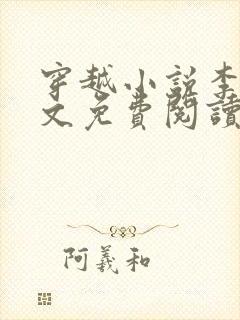 穿越小說李
文免費閱讀
阿義和